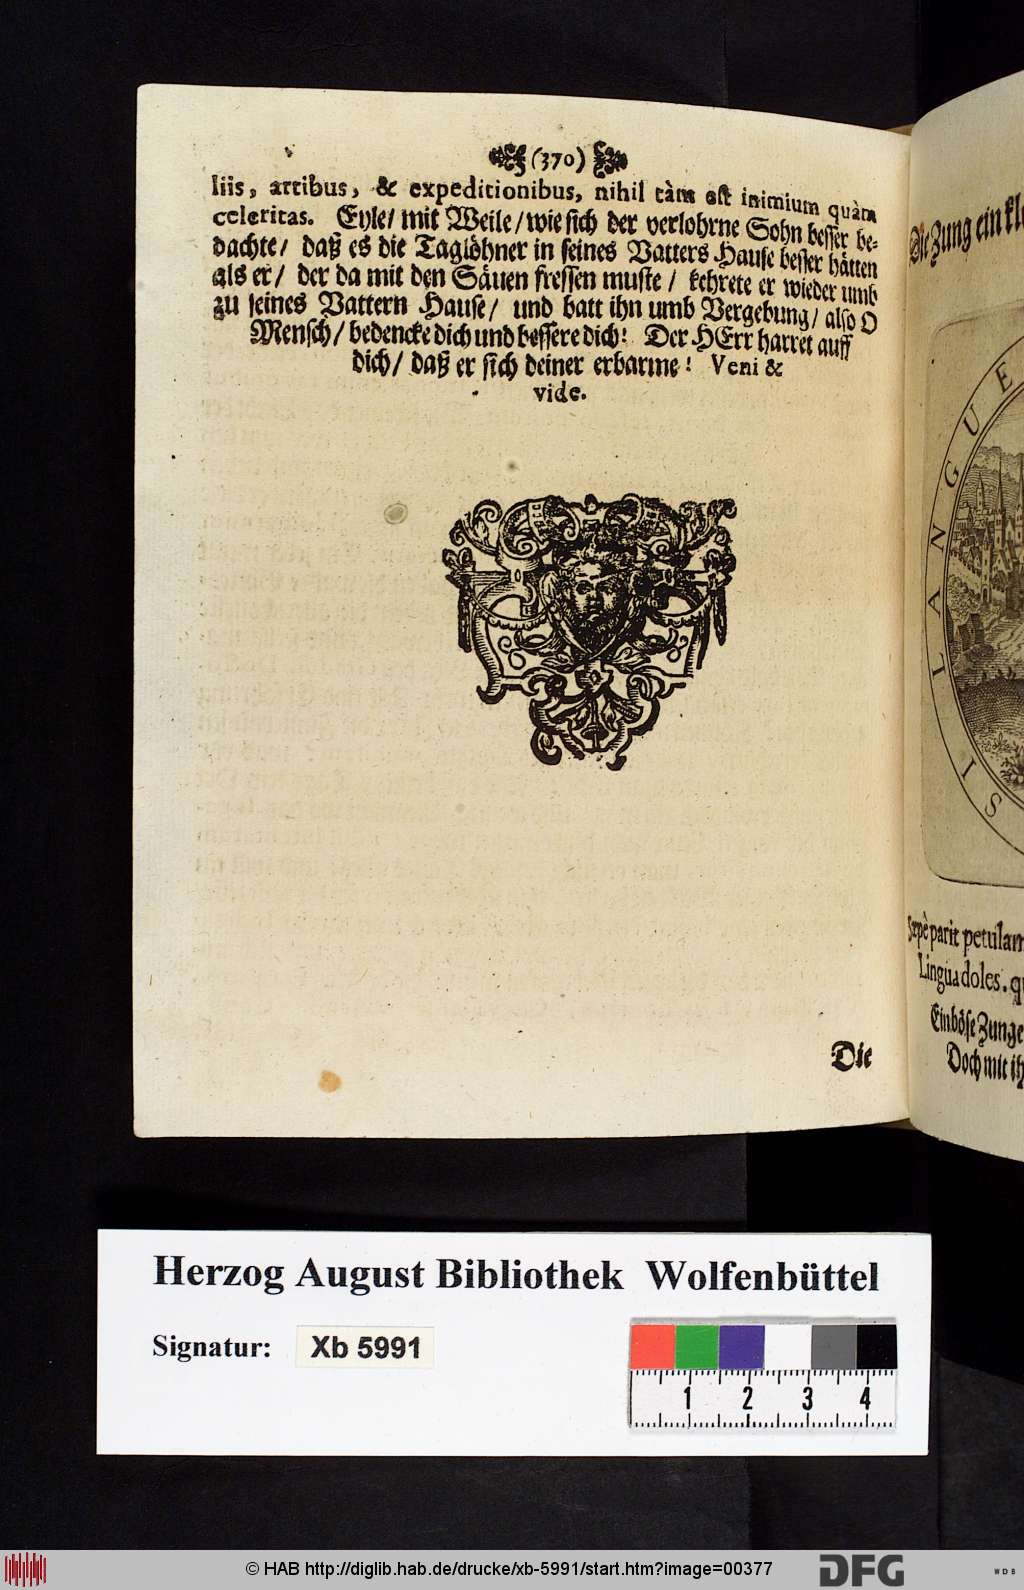 (370)
liis, artibus, & expeditionibus, nihil tàm est inimium quàm
celeritas. Eyle/ mit Weile/ wie sich der verlohrne Sohn besser be-
dachte/ daß es die Taglöhner in seines Vatters Hause besser hätten
als er/ der da mit den Säuen fressen muste/ kehrete er wieder umb
zu seines Vattern Hause/ und batt ihn umb Vergebung/ also O
Mensch/ bedencke dich und bessere dich! Der HErr harret auff
dich/ daß er sich deiner erbarme! Veni &
vide.
Die
Die Zung ein
LINGUE
SIS
Sæpè parit
Lingua doles.
Ein böse Zunge
Doch mit
Herzog August Bibliothek Wolfenbüttel
Signatur: Xb 5991
1 2 3 4
© HAB http://diglib.hab.de/drucke/xb-5991/start.htm?image=00377
DFG
WDB